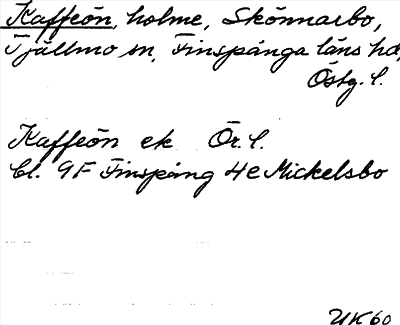 Kaffeön, holme, Skönnarbo,
Tjällmo sn, Finspånga läns hd,
Östg. l.
Kaffeön ek Ör. l.
bl. 9F Finspång 4e Mickelsbo
UK60